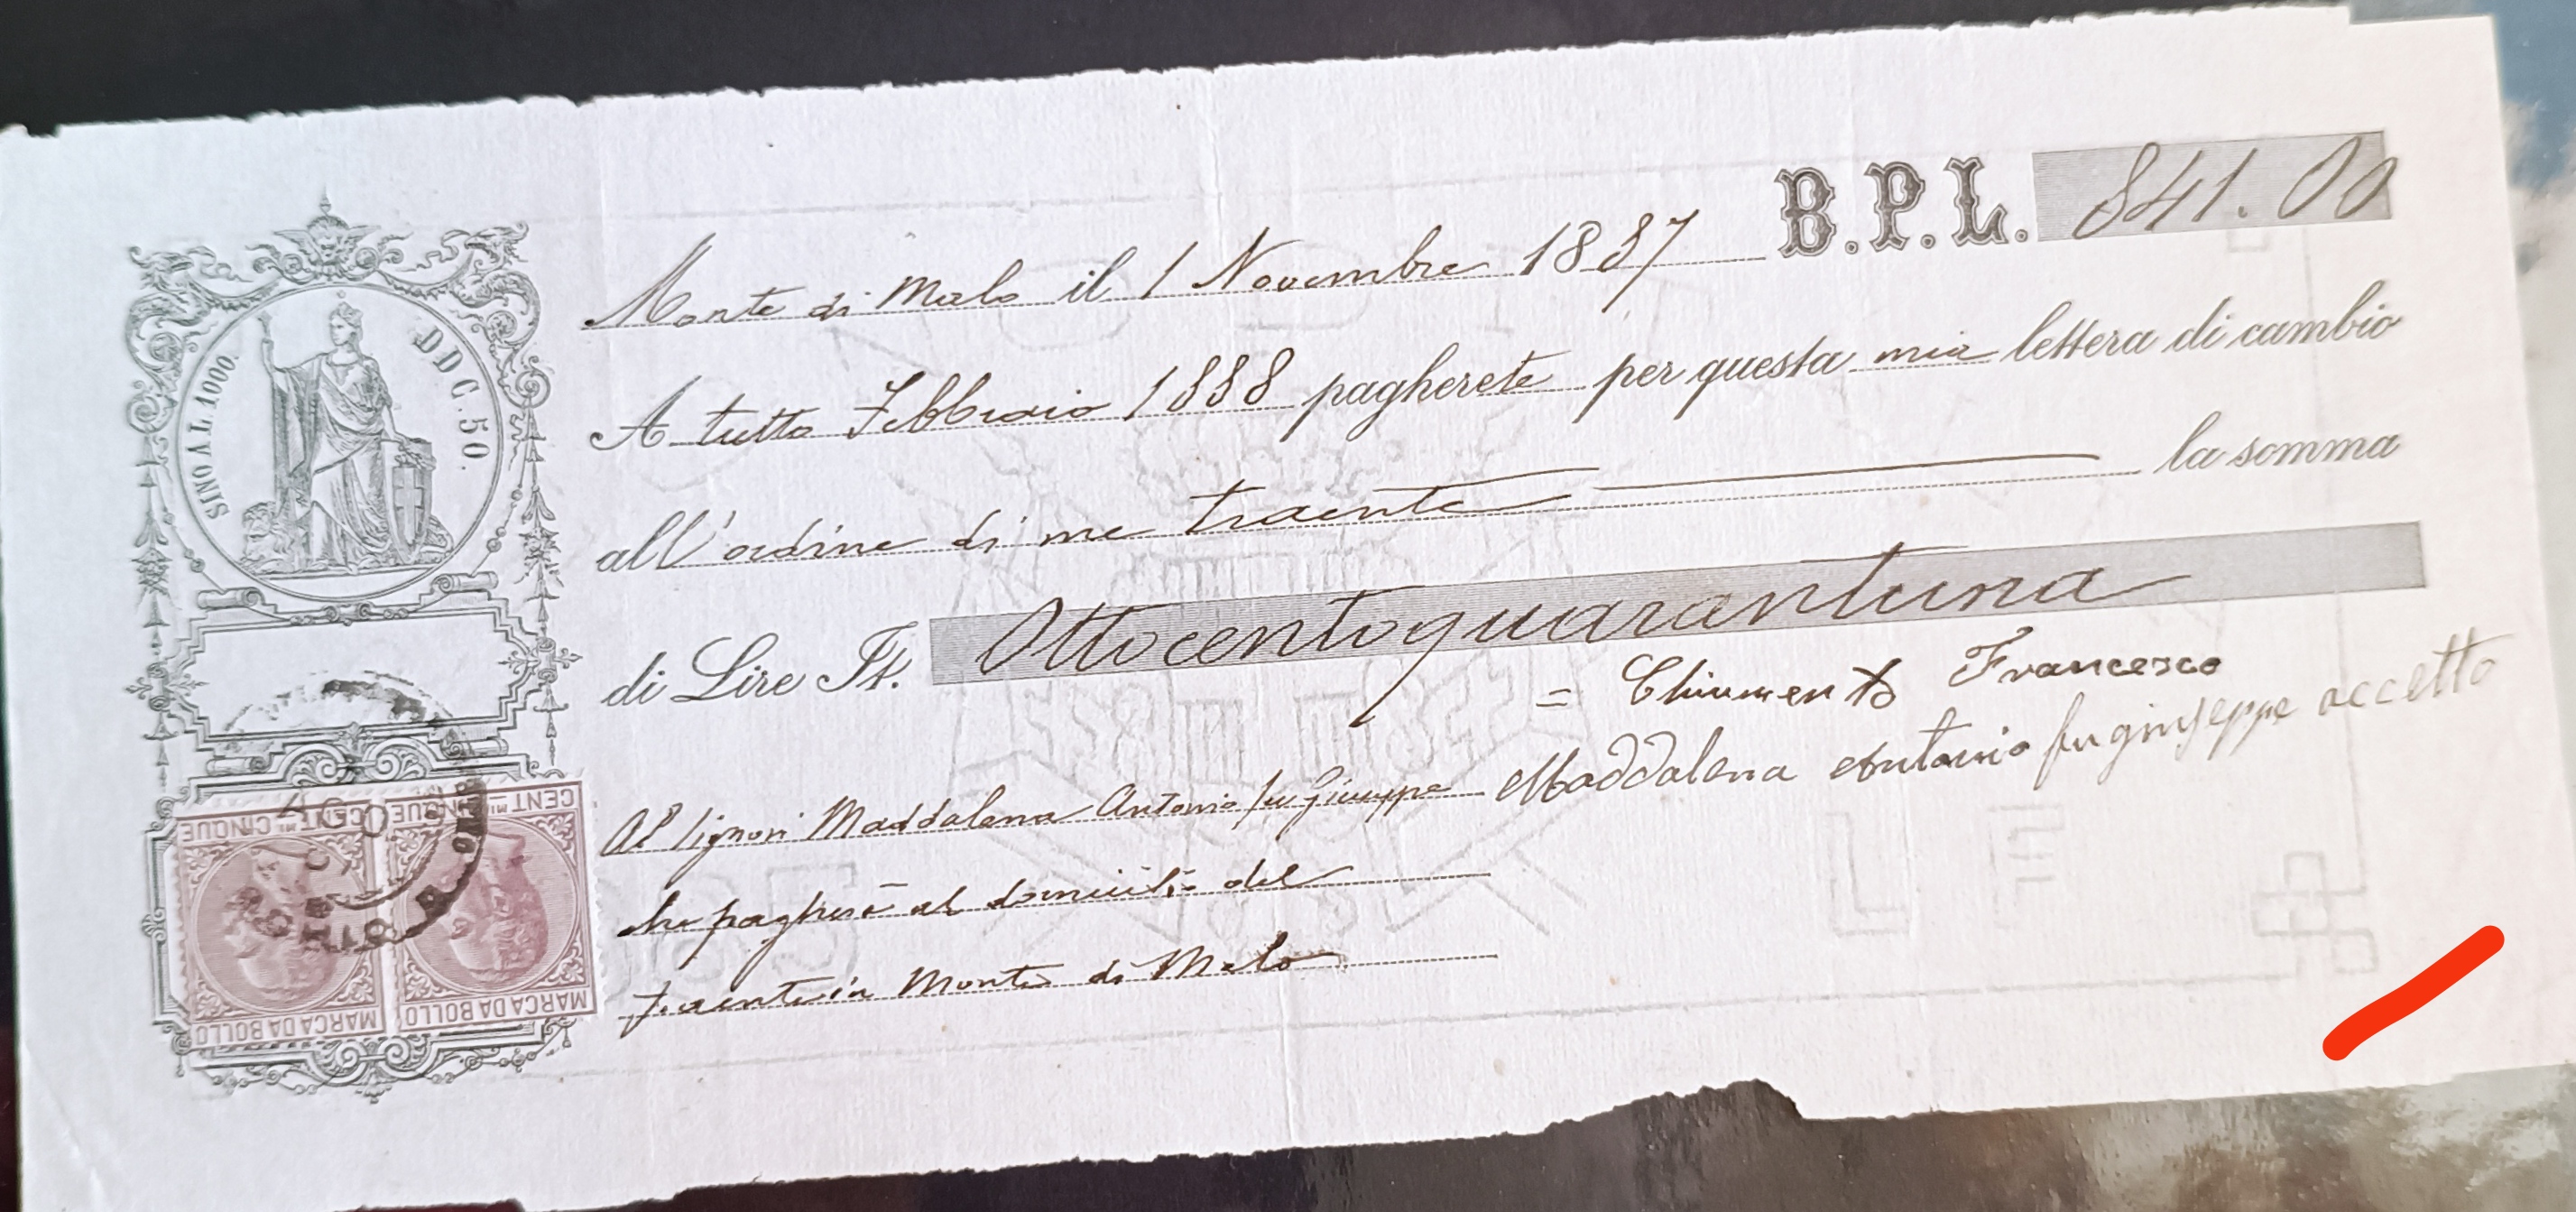 B.P.L. 841.00
Monte di Malo il 1 Novembre 1887
A tutto Febbraio 1888 pagherete per questa mia lettera di cambio
all'ordine di me traente la somma
di Lire It. Ottocentoquarantuna
= Chiumento Francesco
Al Signori Maddalena Antonio fu Giuseppe
Maddalena Antonio fu giuseppe accetto
che pagherà al domicilio del
traente in Monte di Malo
SINO A L.1000.
DDC.50.
CENT.MI CINQUE
CENT.MI CINQUE
MARCA DA BOLLO
MARCA DA BOLLO